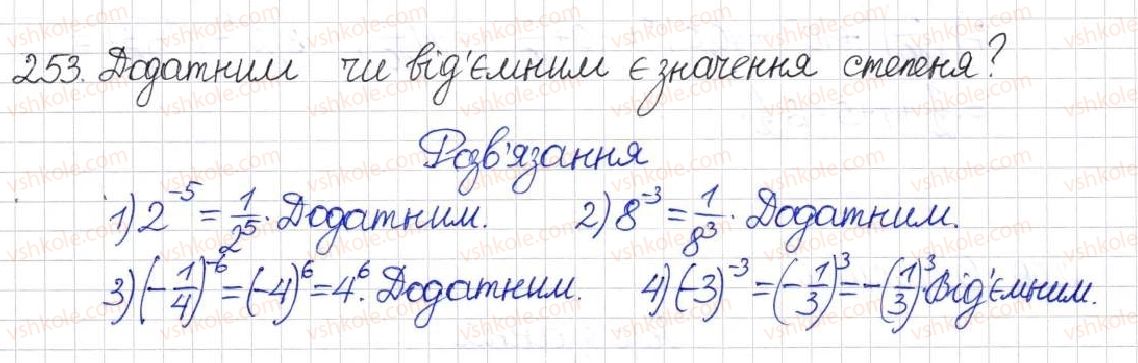 253. Додатним чи від'ємним є значення степеня?
Розв'язання
1) 2⁻⁵ = 1/2⁵. Додатним. 2) 8⁻³ = 1/8³. Додатним.
3) (-1/4)⁻⁶ = (-4)⁶ = 4⁶. Додатним. 4) (-3)⁻³ = (-1/3)³ = -(1/3)³. Від'ємним.
vshkole.com